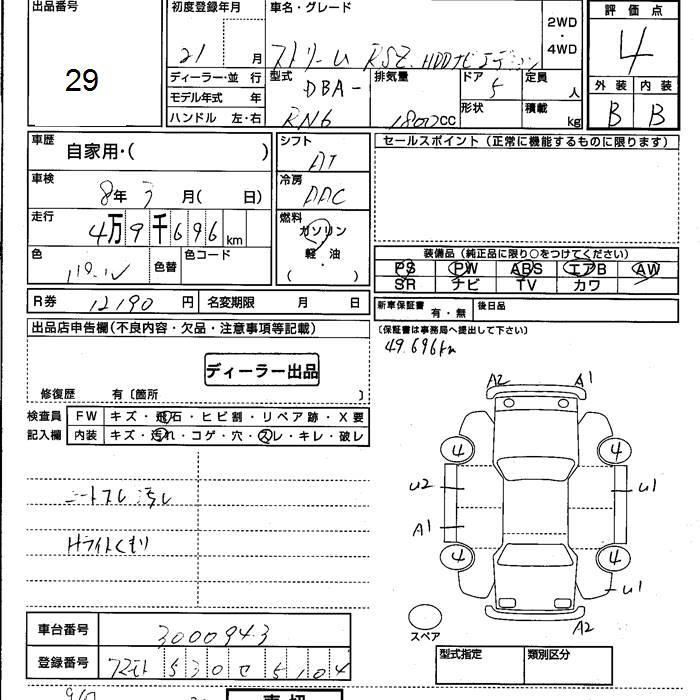 出品番号
29
初度登録年月
21 月
車名・グレード
ストリーム RSZ HDDナビエディション
2WD
・
4WD
評価点
4
外装 内装
B B
ディーラー・並行
モデル年式 年
ハンドル 左・右
型式
DBA-
RN6
排気量
1800cc
ドア
5
形状
定員
人
積載
kg
車歴
自家用・( )
車検
8年 3月( 日)
走行
4万9千696km
色
色替
色コード
シフト
AT
冷房
AAC
燃料
ガソリン
軽・油
( )
セールスポイント (正常に機能するものに限ります)
装備品 (純正品に限り○をつけてください)
PS PW ABS エアB AW
SR ナビ TV カワ
R券 12190 円 名変期限 月 日
新車保証書 有・無 後日品
(保証書は事務局へ提出して下さい)
49.696km
出品店申告欄(不良内容・欠品・注意事項等記載)
ディーラー出品
修復歴 有〔箇所 〕
検査員
記入欄
FW キズ・飛石・ヒビ割・リペア跡・X要
内装 キズ・汚れ・コゲ・穴・スレ・キレ・破レ
シートスレ汚レ
Hライトくもり
A2 A1
4 4
U2 U1
A1
4 4
U1
A2
スペア
車台番号 3000943
登録番号 530 せ 5104
型式指定 類別区分